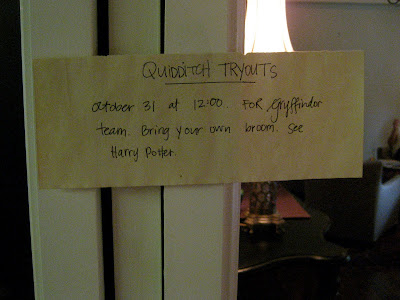 QUIDDITCH TRYOUTS
October 31 at 12:00. FOR Gryffindor
team. Bring your own broom. See
Harry Potter.